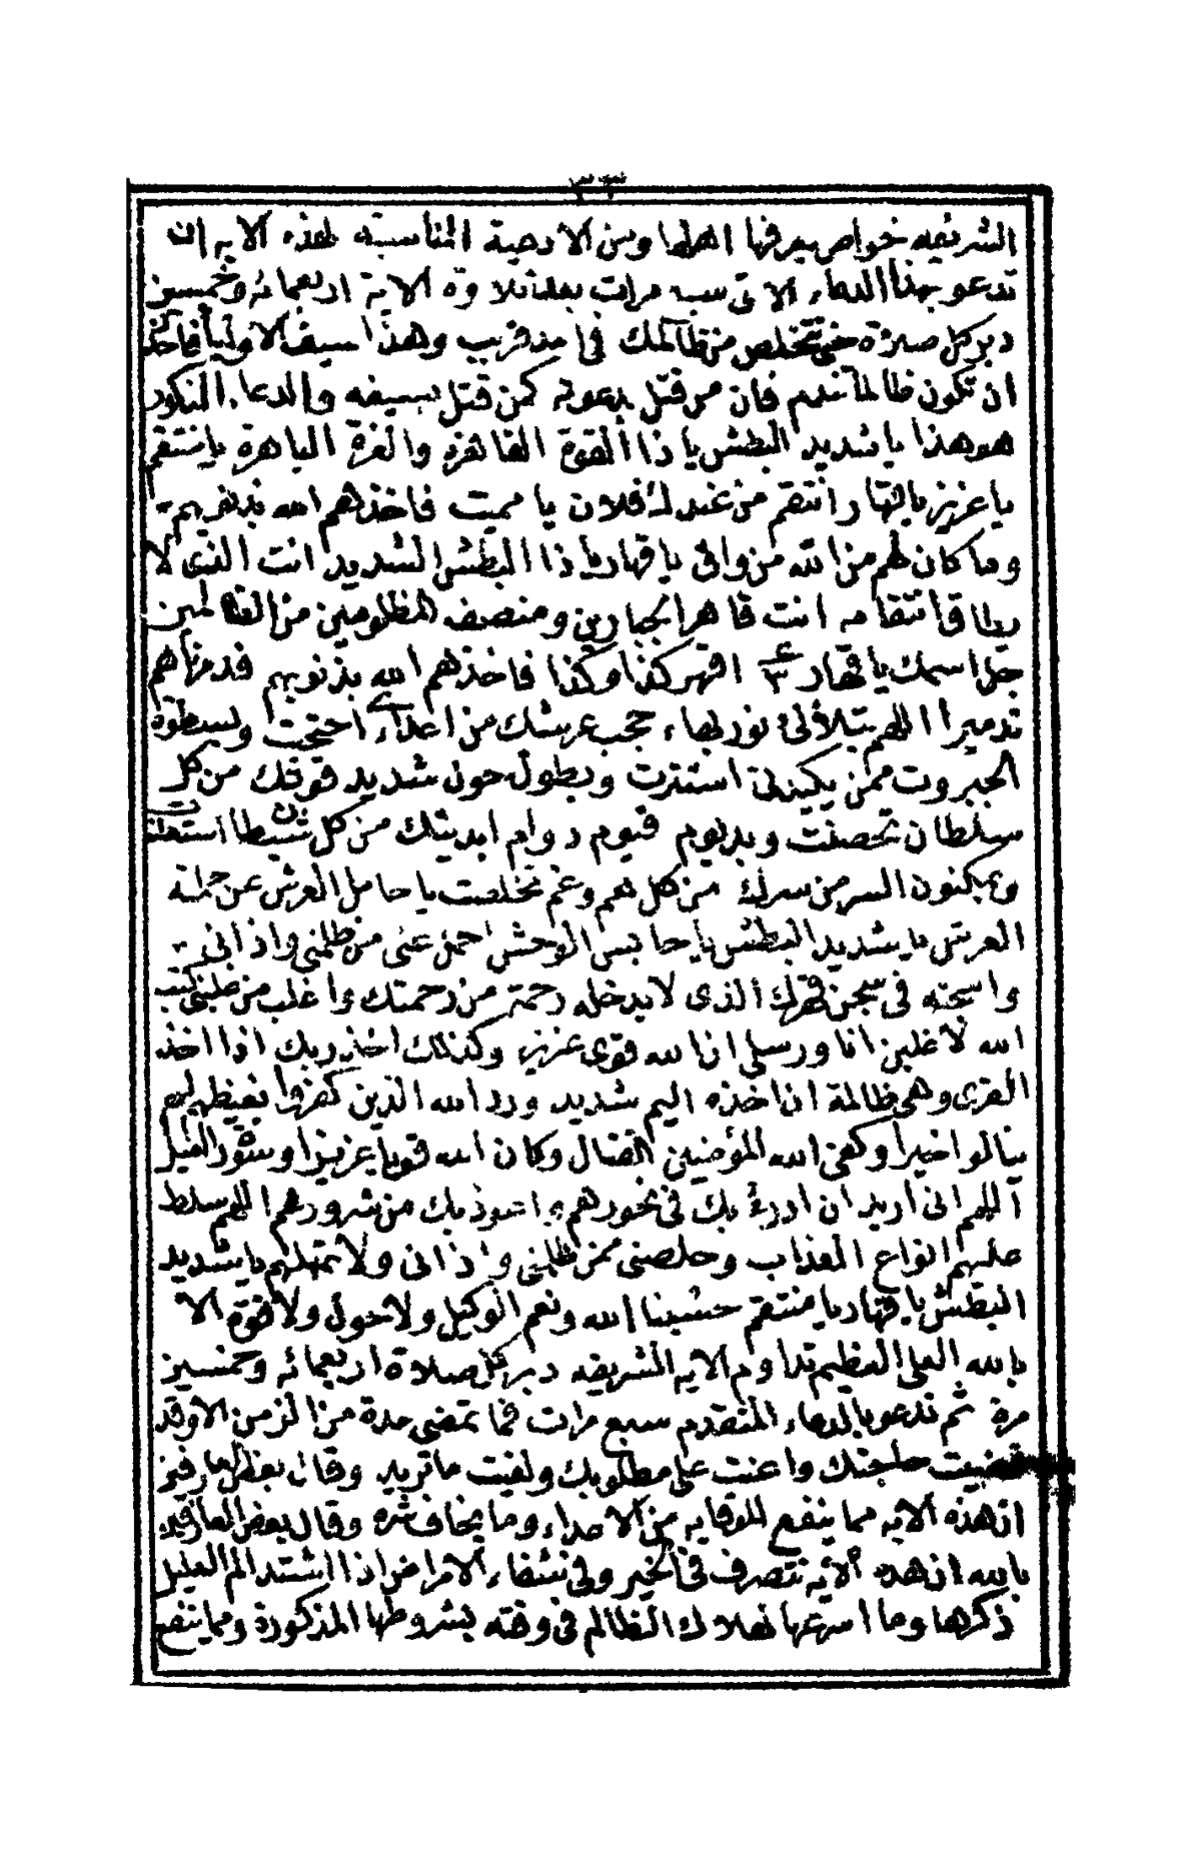 ٣٣
الشريفه خواص يعرفها العلما ومن الادعية المناسبة لهذه الايه ان
تدعو بهذا الدعاء الاتى سبع مرات بعد تلاوة الاية اربعمائه وخمسين
دبر كل صلاة حتى تتخلص من ظالمك فى امد قريب وهذا سيف الاوليا فاحذر
ان تكون ظالما تندم فان من قتل بدعوته كمن قتل بسيفه والدعاء المذكور
هو هذا يا شديد البطش يا ذا القوة القاهره والعزة الباهرة يا منتقم
يا عزيز يا قهار انتقم من عبدك فلان يا مميت فاخذهم الله بذنوبهم
وما كان لهم من الله من واق يا قهار يا ذا البطش الشديد انت الذى لا
يطاق انتقامه انت قاهر الجبارين ومنصف المظلومين من الظالمين
جل اسمك يا قهار ٣ اقهر كذا وكذا فاخذهم الله بذنوبهم فدمرناهم
تدميرا اللهم بتلألئ نور بهاء حجب عرشك من اعداءى احتجبت وبسطوة
الجبروت ممن يكيدنى استترت وبطول حول شديد قوتك من كل
سلطان تحصنت وبديوم قيوم دوام ابديتك من كل شيطان استعذت
وبمكنون السر من سرك من كل هم وغم تخلصت يا حامل العرش عن حملة
العرش يا شديد البطش يا حابس الوحش احبس عنى من ظلمنى واذانى
واسجنه فى سجن قهرك الذى لا يدخله رحمة من رحمتك واغلب من غلبنى كتب
الله لاغلبن انا ورسلى ان الله قوى عزيز وكذلك اخذ ربك اذا اخذ
القرى وهى ظالمة ان اخذه اليم شديد ورد الله الذين كفروا بغيظهم لم
ينالوا خيرا وكفى الله المؤمنين القتال وكان الله قويا عزيزا وسورة الفيل
اللهم انى اريد ان ادرءبك فى نحورهم واعوذ بك من شرورهم اللهم سلط
عليهم انواع العذاب وخلصنى ممن ظلمنى واذانى ولا تمهلهم يا شديد
البطش يا قهار يا منتقم حسبنا الله ونعم الوكيل ولا حول ولا قوة الا
بالله العلى العظيم تداوم الايه الشريفه دبر كل صلاة اربعمائه وخمسين
مرة ثم تدعو بالدعاء المتقدم سبع مرات فما تمضى مدة من الزمن الا وقد
قضيت حاجتك واعنت على مطلوبك ولقيت ما تريد وقال بعض العارفين
ان هذه الايه مما ينفع للوقايه من الاعداء وما يخاف شره وقال بعض العارفين
بالله ان هذه الايه تتصرف فى الخير وفى شفاء الامراض اذا اشتد الم العليل
ذكرها وما اسرعها لهلاك الظالم فى وقته بشروطها المذكورة ومما ينفع